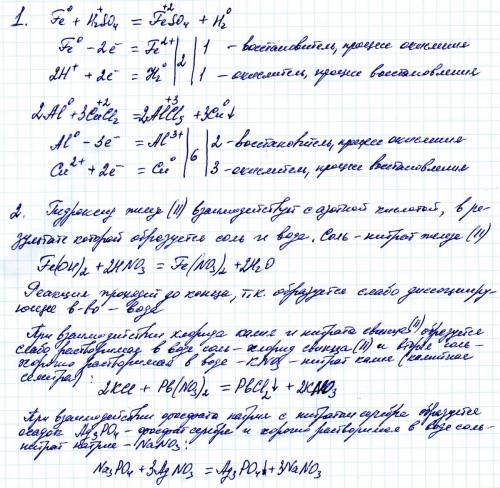 1. Fe⁰ + H₂⁺SO₄ = Fe⁺²SO₄ + H₂⁰
Fe⁰ - 2ē = Fe²⁺ | 2 | 1 - восстановитель, процесс окисления
2H⁺ + 2ē = H₂⁰ | | 1 - окислитель, процесс восстановления
2Al⁰ + 3Cu⁺²Cl₂ = 2Al⁺³Cl₃ + 3Cu⁰↓
Al⁰ - 3ē = Al³⁺ | 6 | 2 - восстановитель, процесс окисления
Cu²⁺ + 2ē = Cu⁰ | | 3 - окислитель, процесс восстановления
2. Гидроксид железа (II) взаимодействует с азотной кислотой, в ре-
зультате которой образуется соль и вода. Соль - нитрат железа (II)
Fe(OH)₂ + 2HNO₃ = Fe(NO₃)₂ + 2H₂O
Реакция проходит до конца, т.к. образуется слабо диссоцииру-
ющее в-во - вода
При взаимодействии хлорида калия и нитрата свинца (II) образуется
слабо растворимая в воде соль - хлорид свинца (II) и вторая соль -
хорошо растворимая в воде - KNO₃ - нитрат калия (калийная
селитра):
2KCl + Pb(NO₃)₂ = PbCl₂↓ + 2KNO₃
При взаимодействии фосфата натрия с нитратом серебра образуется
осадок Ag₃PO₄ - фосфат серебра и хорошо растворимая в воде соль -
нитрат натрия - NaNO₃:
Na₃PO₄ + 3AgNO₃ = Ag₃PO₄↓ + 3NaNO₃